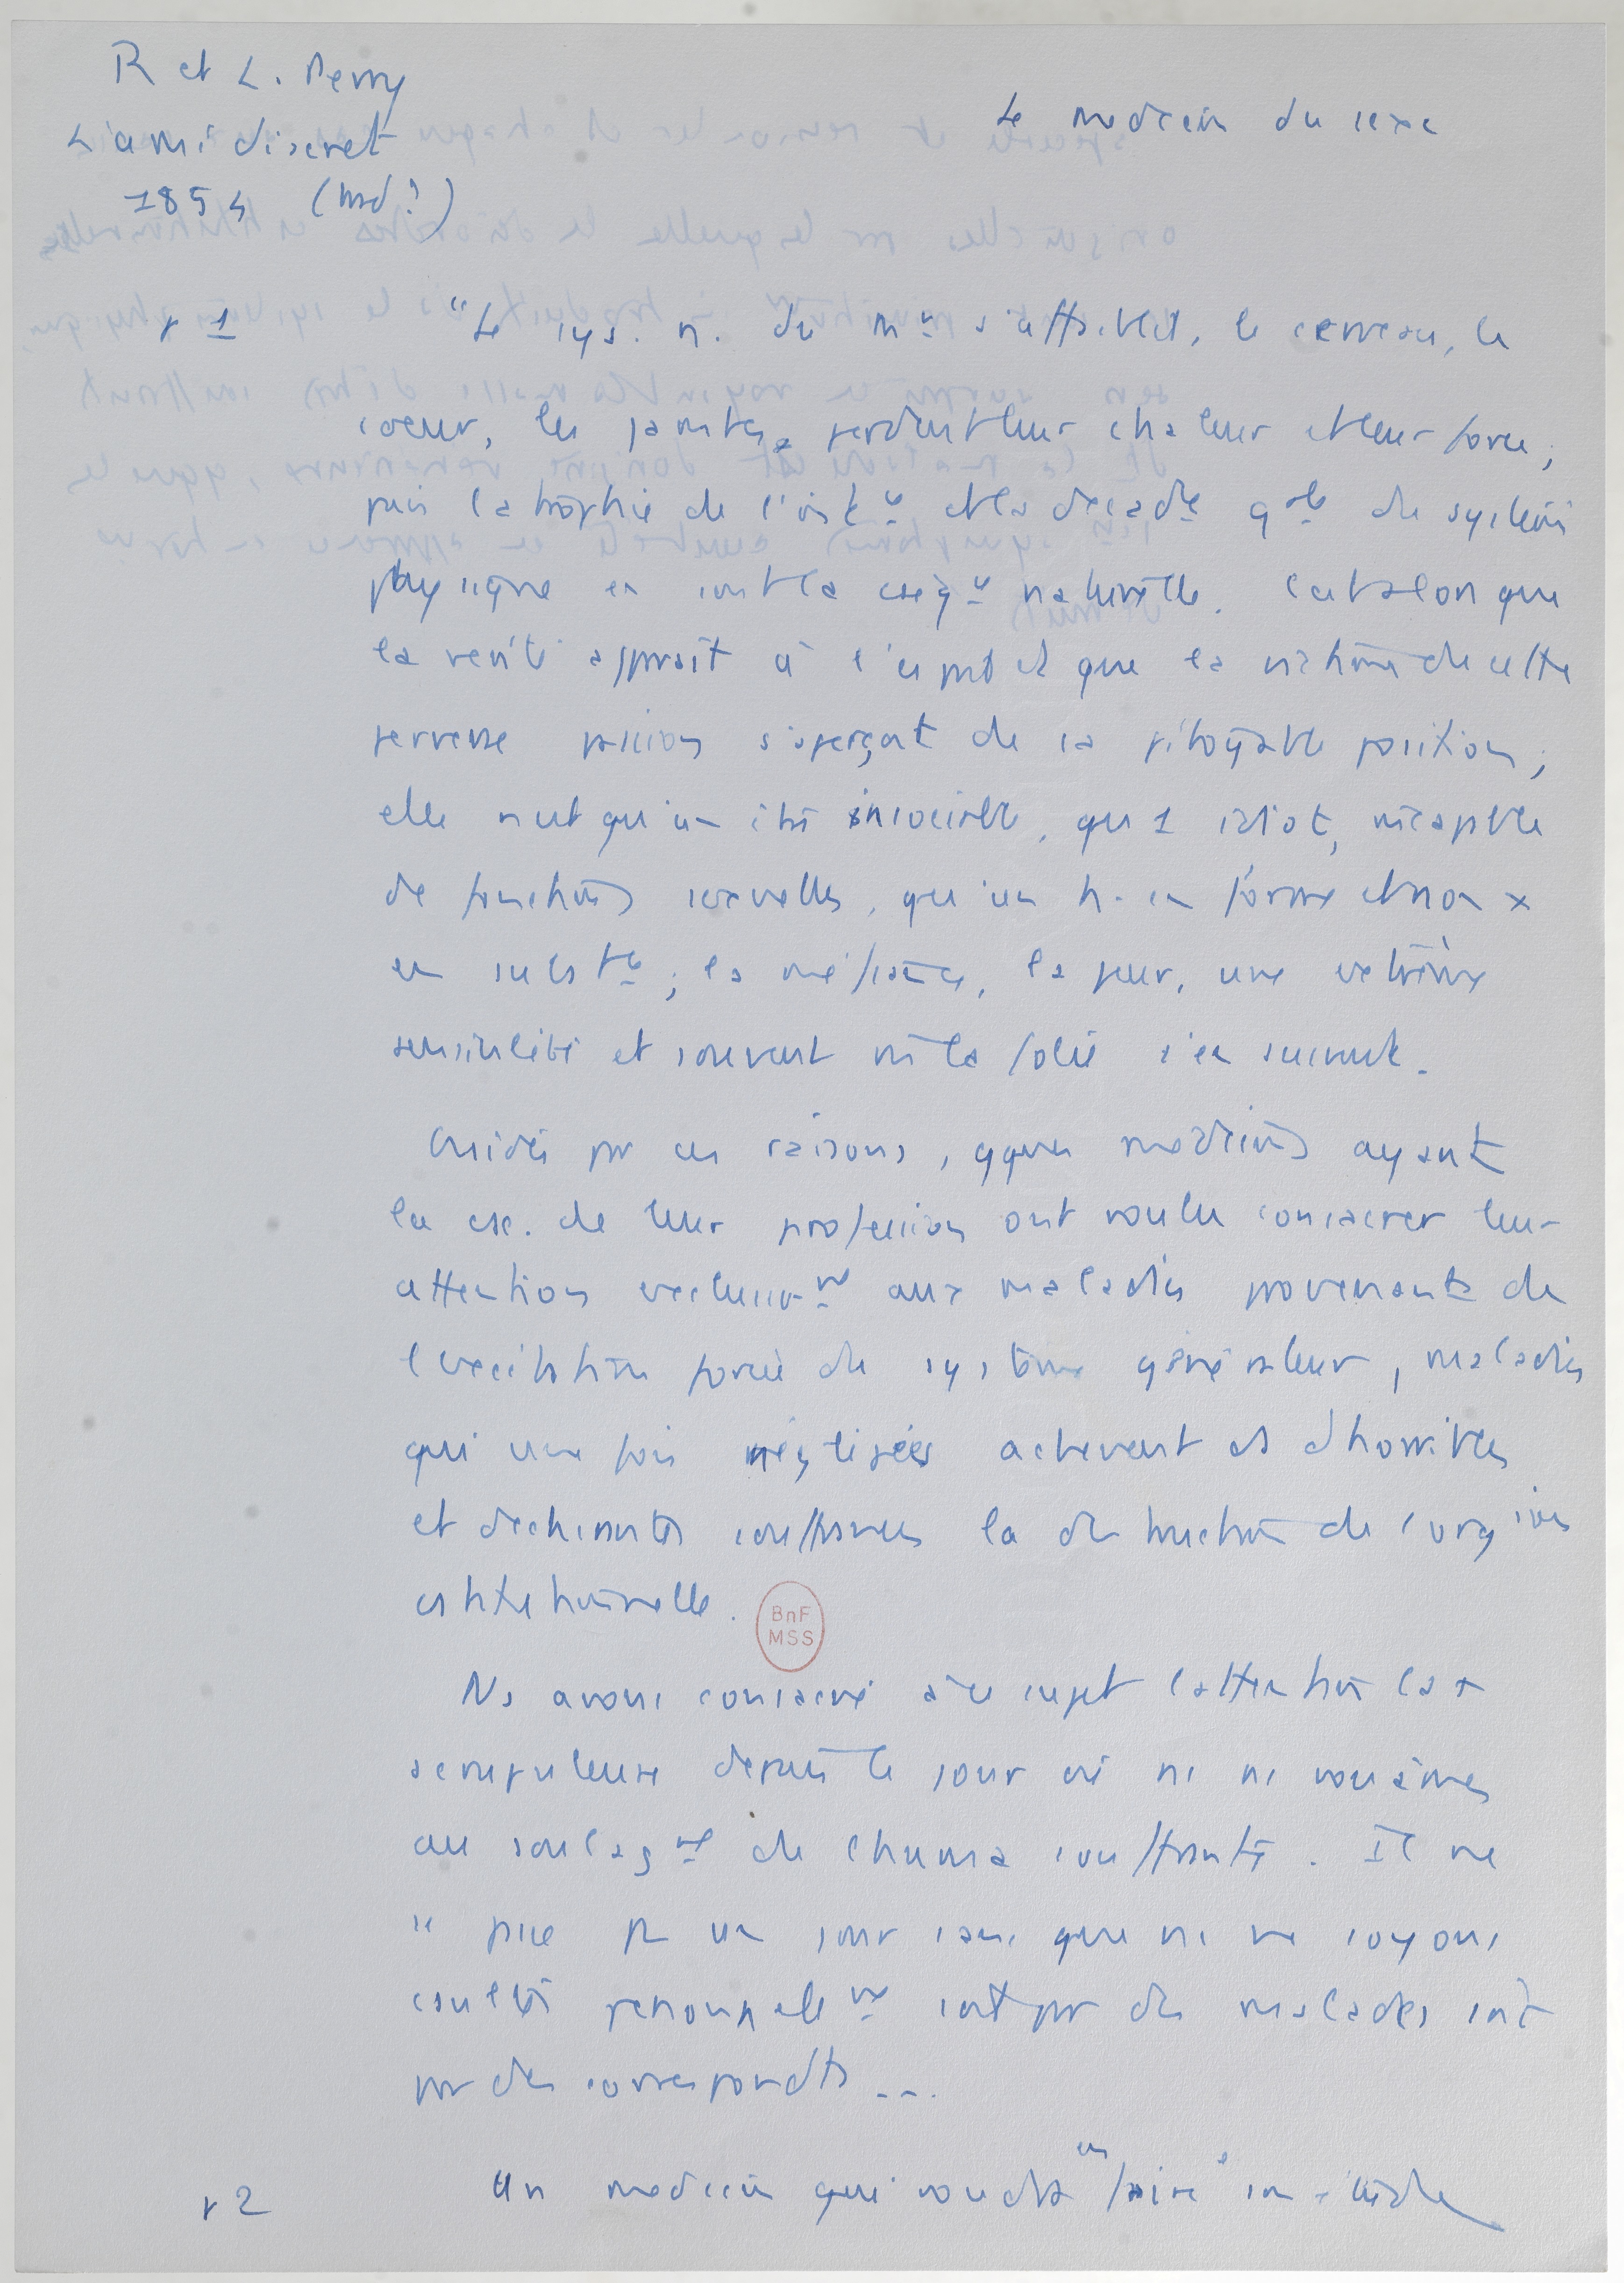 R et L. Perry
L'ami discret
1854 (trad?)
Le medecin du sexe
p 1
"Le sys. n. du m^e s'affaiblit, le cerveau, le
coeur, les jambes perdent leur chaleur et leur force,
puis l'atrophie de l'int^ce et la décad^ce g^ale du système
physique en sont la cséq^ce naturelle. C'est alors que
la vérité apparaît à l'esprit et que la victime de cette
perverse passion s'aperçoit de sa pitoyable position;
elle n'est qu'un être insociable, qu'1 idiot, incapable
de fonctions sexuelles, qu'un h. en forme et non
en subst^ce; la méfiance, la peur, une extrême
sensibilité et souvent m la folie s'en suivent.
Guidés pr ces raisons, qques médecins ayant
la csc. de leur profession ont voulu consacrer leur
attention exclusiv^nt aux maladies provenants de
l'excitation forcée du système générateur, maladies
qui une fois négligées achèvent ds d'horribles
et déchirantes souffrances la destruction de l'org^ion
cstitutionnelle.
BnF
MSS
Ns avons consacré à ce sujet l'attention la +
scrupuleuse depuis le jour où ns ns vouâmes
au soulag^nt de l'human souffrante. Il ne
se passe pas un jour sans que ns ne soyons
csultés personnell^nt soit pr des malades soit
pr des correspondts ---
p 2
Un medecin qui voudra en faire son étude